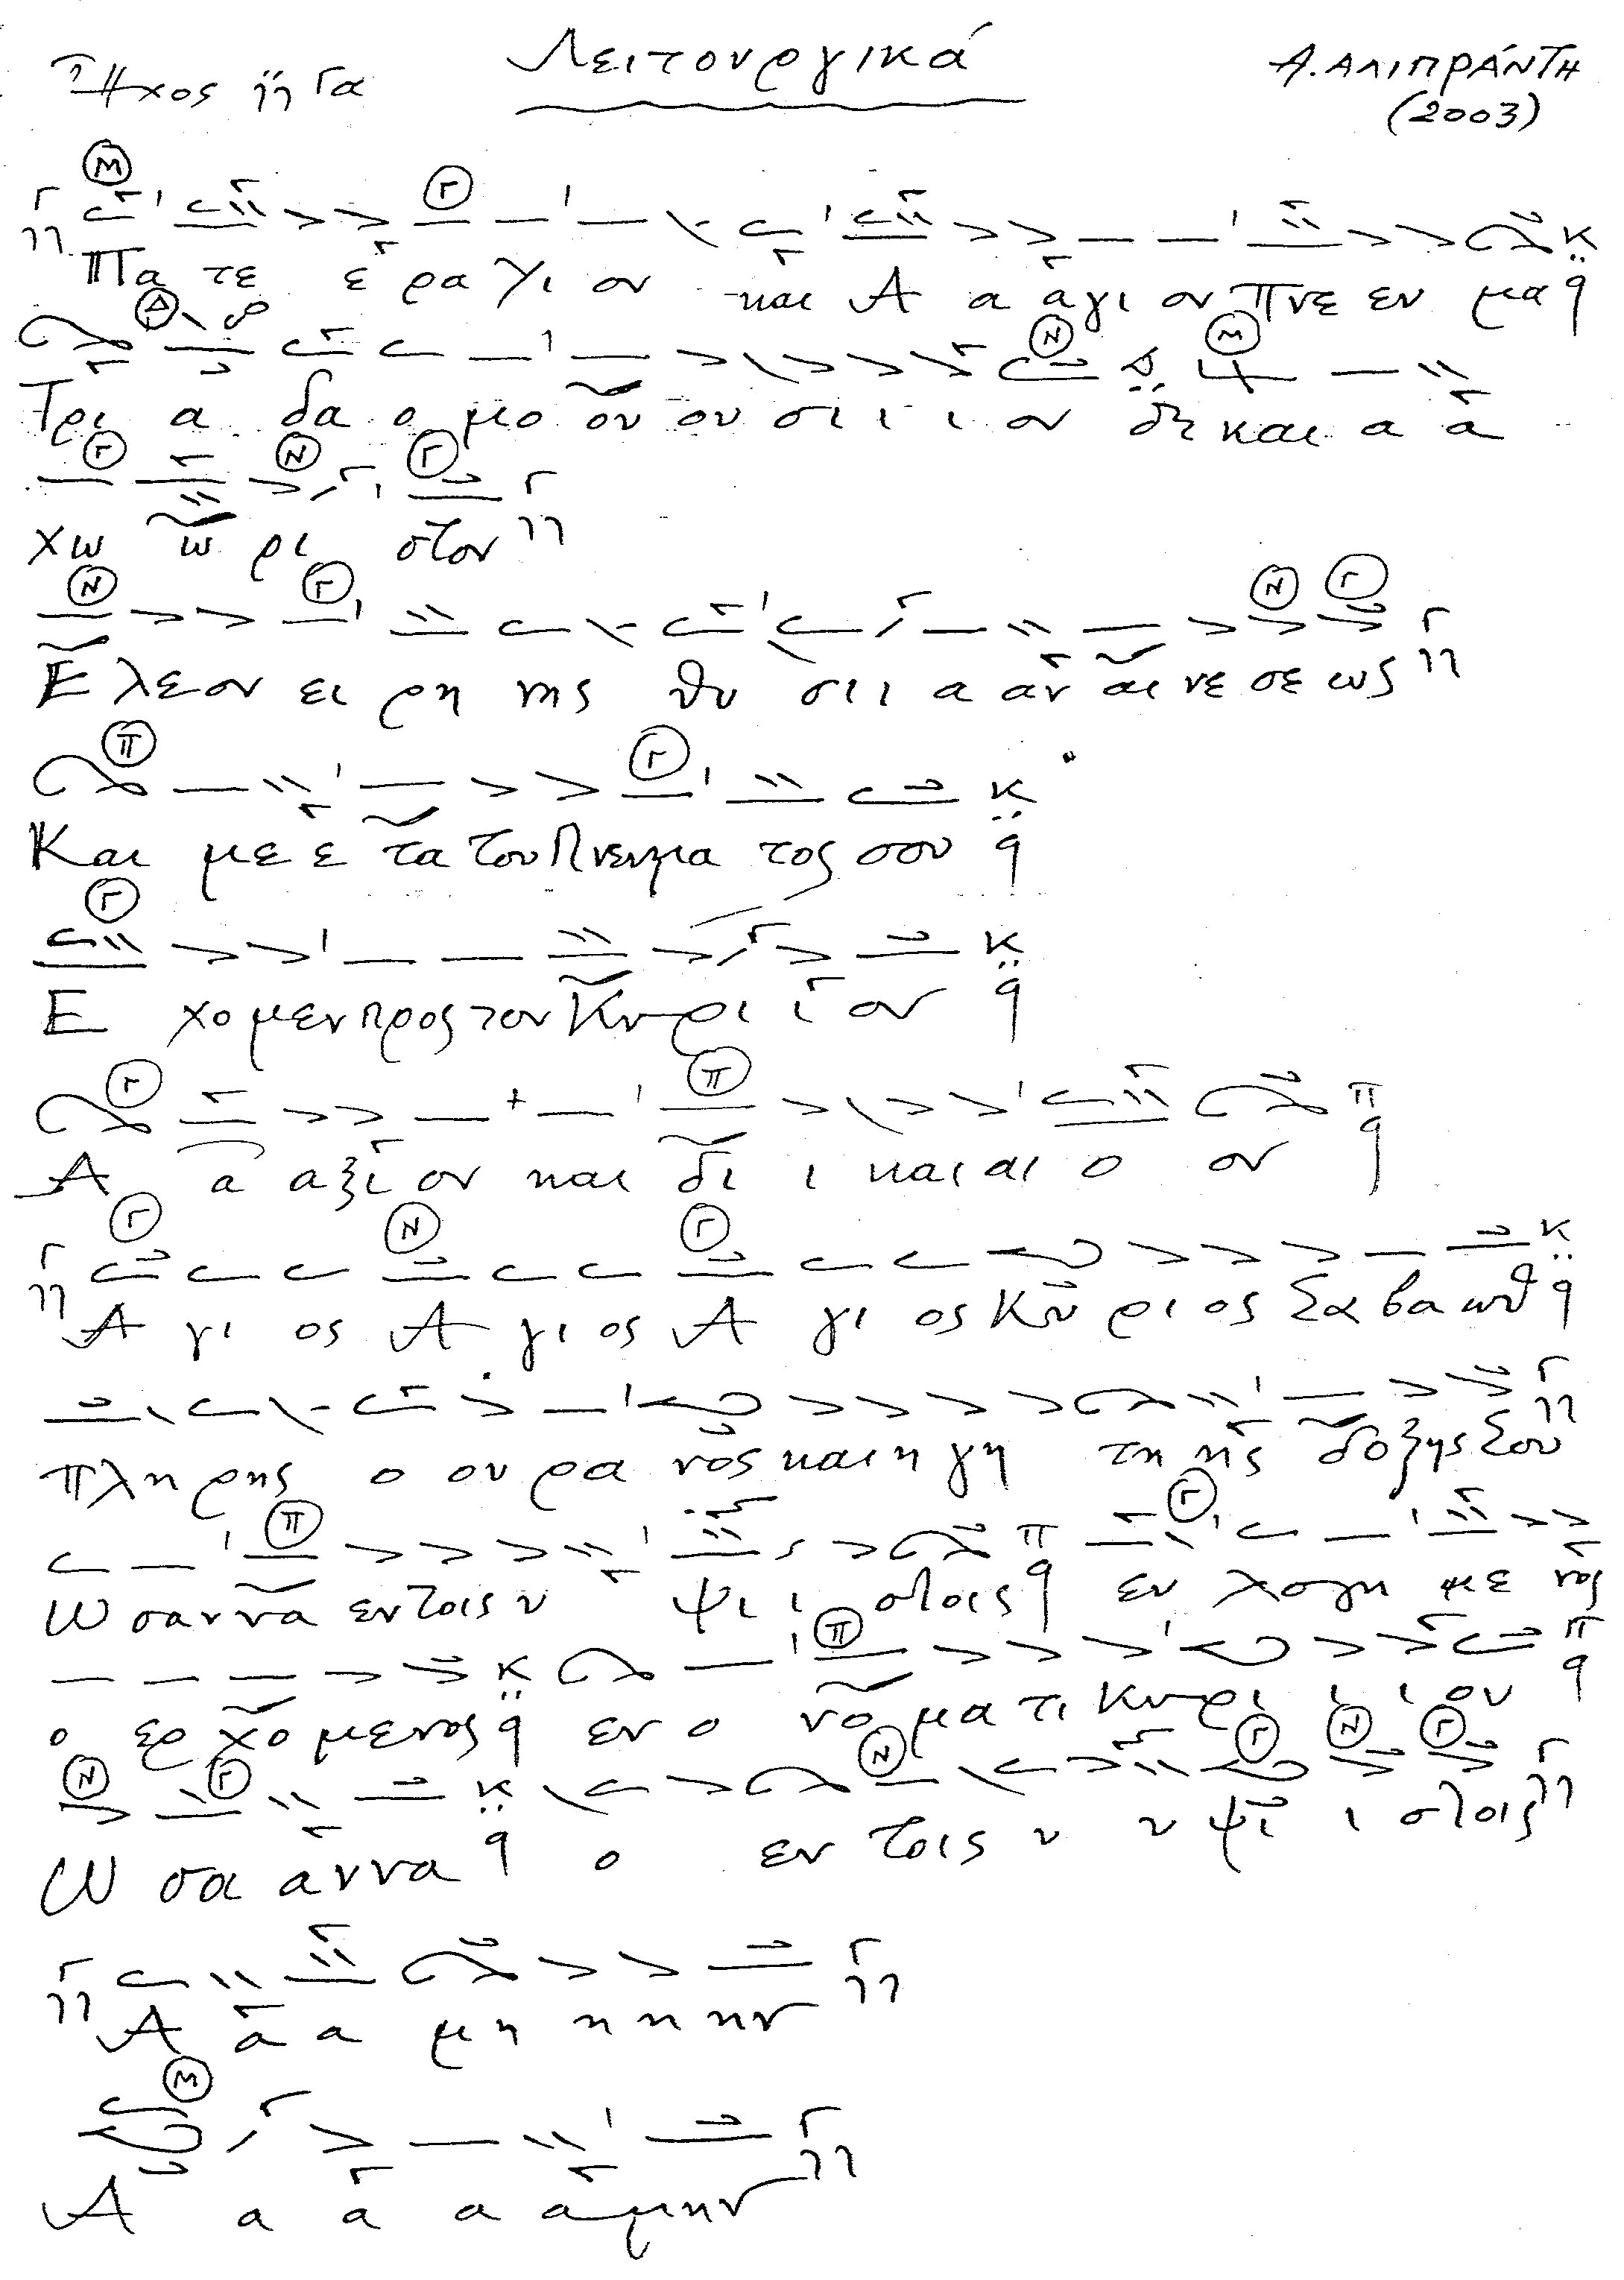 Ἦχος Γα Λειτουργικά Α. ΑΛΙΠΡΑΝΤΗ
(2003)
Πα τε ε ρα Υι ον και Α α α γι ον Πνε ευ μα
Τρι α δα ο μο ου ου σι ι ι ον και α α
χω ω ρι στον
Ε λε ον ει ρη νης θυ σι ι α αν αι νε σε ως
Και με ε τα του Πνευμα τος σου
Ε χο μεν προς τον Κυ ρι ι ον
Α α α ξι ον και δι ι και αι ο ον
Α γι ος Α γι ος Α γι ος Κυ ρι ος Σα βα ωθ
πλη ρης ο ου ρα νος και η γη τη ης δο ξης Σου
Ω σαν να εν τοις υ ψι ι στοις ευ λογη με νος
ο ερ χο μενος εν ο νο μα τι Κυ ρι ι ι ου
Ω σα αν να ο εν τοις υ υ ψι ι στοις
Α α α μη η η ην
Α α α α α μην